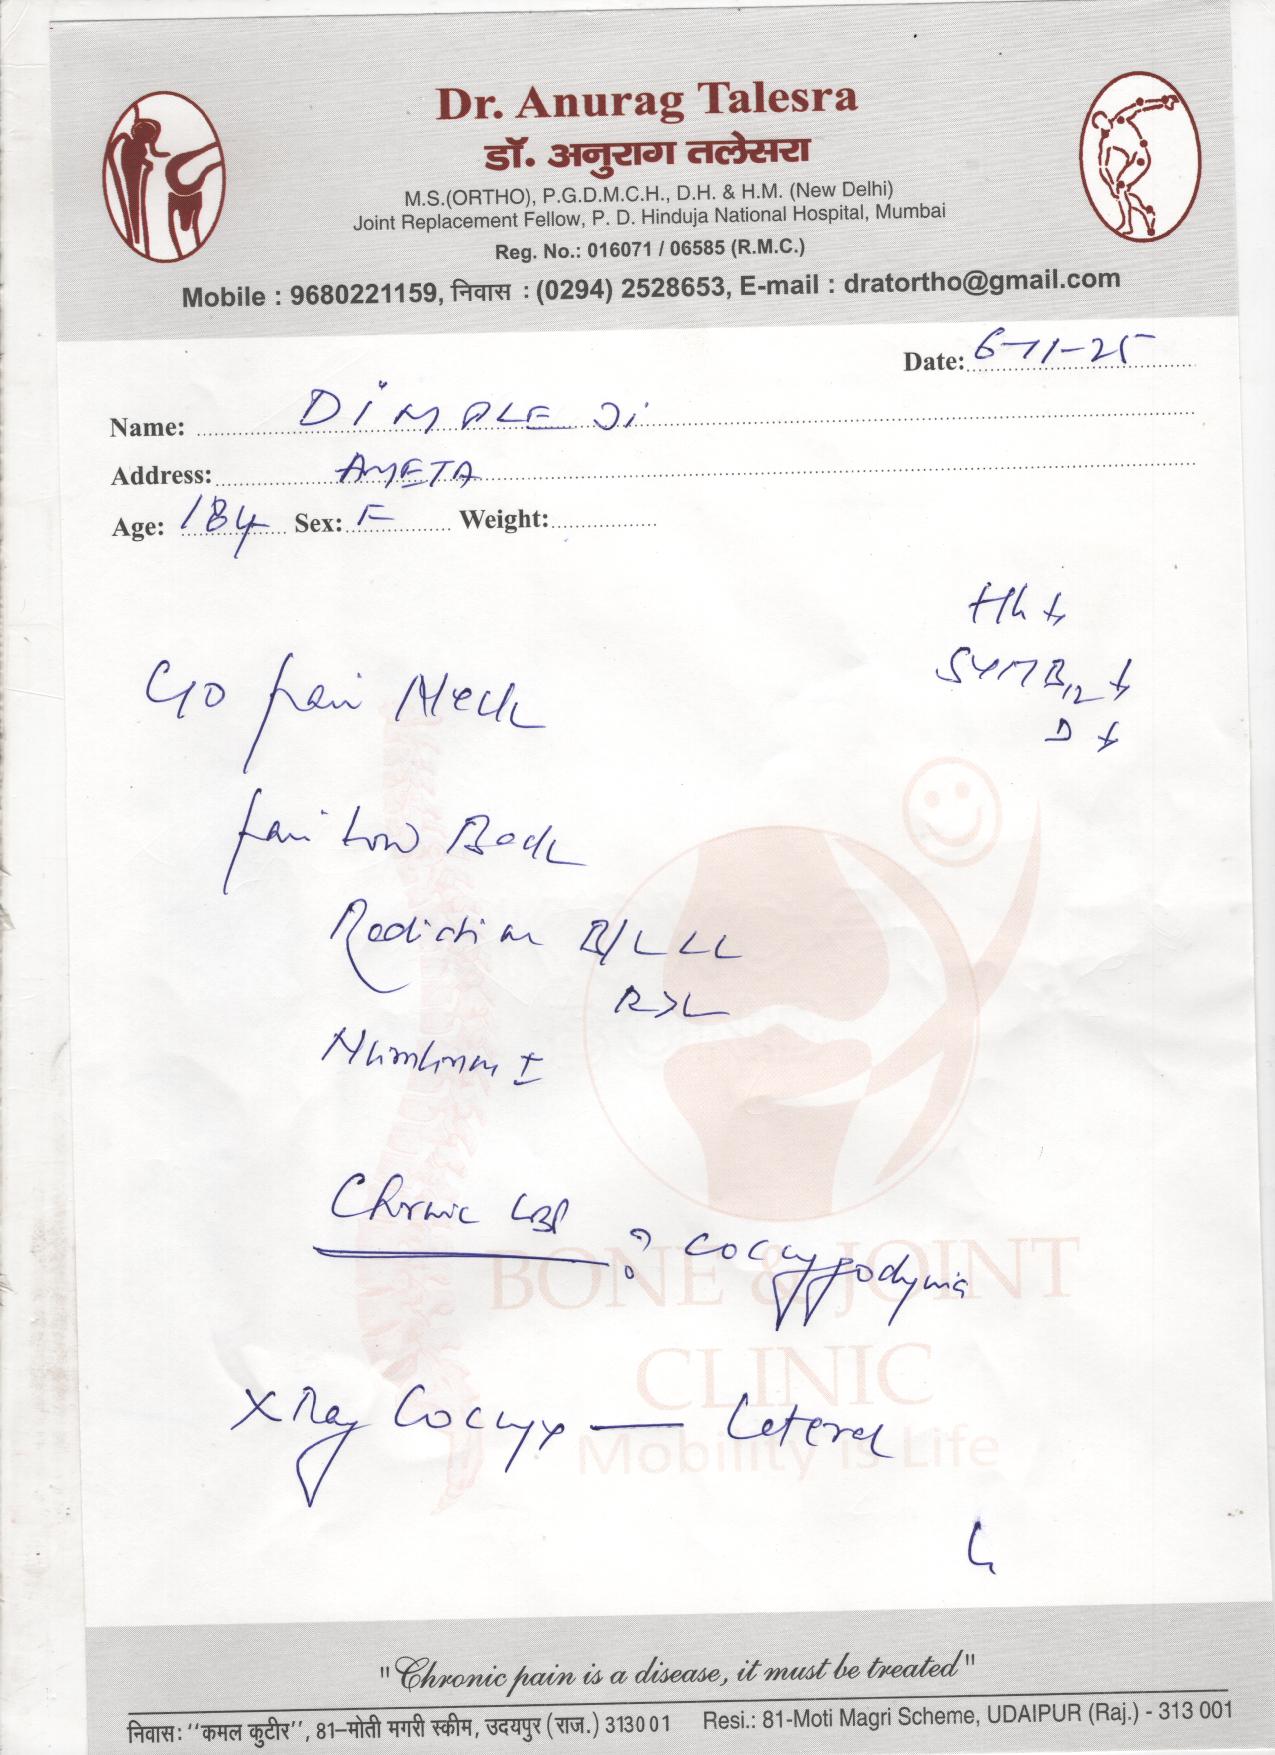 Dr. Anurag Talesra
डॉ. अनुराग तलेसरा
M.S.(ORTHO), P.G.D.M.C.H., D.H. & H.M. (New Delhi)
Joint Replacement Fellow, P. D. Hinduja National Hospital, Mumbai
Reg. No.: 016071 / 06585 (R.M.C.)
Mobile : 9680221159, निवास : (0294) 2528653, E-mail : dratortho@gmail.com
Date: 6-11-25
Name: DIMPLE Ji
Address: AMETA
Age: 18y Sex: F Weight:
Hb ↓
SYM B12 ↓
D ↓
C/O Pain Neck
Pain Low Back
Radiation B/L LL
R>L
Numbness ±
Chronic LBP
? Coccygodynia
BONE & JOINT
CLINIC
X Ray Coccyx — Lateral
Mobility is Life
"Chronic pain is a disease, it must be treated"
निवास: ''कमल कुटीर'', 81–मोती मगरी स्कीम, उदयपुर (राज.) 313001 Resi.: 81-Moti Magri Scheme, UDAIPUR (Raj.) - 313 001